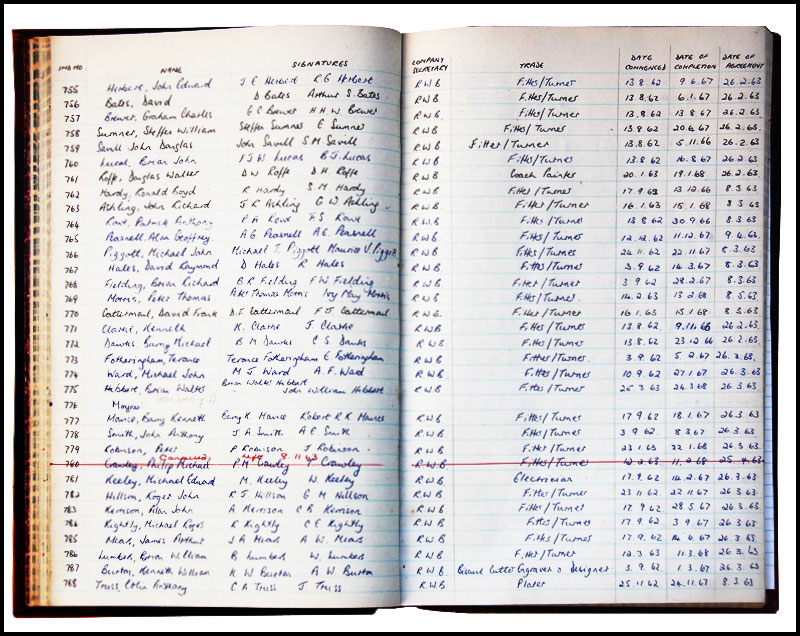 IND NO NAME SIGNATURES COMPANY SECRETARY TRADE DATE COMMENCED DATE OF COMPLETION DATE OF AGREEMENT
755 Herbert, John Edward J E Herbert R G Herbert R W B Fitter/Turner 13.8.62 9.6.67 26.2.63
756 Bates, David D Bates Arthur S. Bates R W B Fitter/Turner 13.8.62 6.1.67 26.2.63
757 Brewer, Graham Charles G C Brewer H H W Brewer R W B Fitter/Turner 13.8.62 13.8.67 26.2.63
758 Sumner, Steffen William Steffen Sumner E Sumner R W B Fitter/Turner 13.8.62 20.6.67 26.2.63
759 Savill John Douglas John Savill S M Savill R W B Fitter/Turner 13.8.62 5.11.66 26.2.63
760 Lucas, Brian John J W Lucas B J Lucas R W B Fitter/Turner 13.8.62 16.8.67 26.2.63
761 Roffe, Douglas Walter D W Roffe D H Roffe R W B Coach Painter 20.1.63 19.1.68 26.2.63
762 Hardy, Ronald Boyd R Hardy S M Hardy R W B Fitter/Turner 17.9.62 13.12.66 8.3.63
763 Ashling, John Richard J R Ashling G W Ashling R W B Fitter/Turner 16.1.63 15.1.68 8.3.63
764 Rowe, Patrick Anthony P A Rowe F S Rowe R W B Fitter/Turner 13.8.62 30.9.66 8.3.63
765 Peasnell, Alan Geoffrey A G Peasnell A E Peasnell R W B Fitter/Turner 12.12.62 11.12.67 9.4.63
766 Piggott, Michael John Michael J. Piggott Maurice V. Piggott R W B Fitter/Turner 24.11.62 22.11.67 8.3.63
767 Hales, David Raymond D Hales R Hales R W B Fitter/Turner 3.9.62 14.3.67 8.3.63
768 Fielding, Brian Richard B R Fielding F W Fielding R W B Fitter/Turner 3.9.62 28.2.67 8.3.63
769 Morris, Peter Thomas Peter Thomas Morris Ivy May Morris R W B Fitter/Turner 14.2.63 13.2.68 8.5.63
770 Cattermaul, David Frank D.F Cattermaul F J Cattermaul R W B Fitter/Turner 16.1.63 15.1.68 8.5.63
771 Clarke, Kenneth K. Clarke J Clarke R W B Fitter/Turner 13.8.62 9.11.66 26.2.63
772 Dawks, Barry Michael B M Dawks C S Dawks R W B Fitter/Turner 13.8.62 23.12.66 26.2.63
773 Fotheringham, Terance Terance Fotheringham E Fotheringham R W B Fitter/Turner 3.9.62 5.2.67 26.3.63
774 Ward, Michael John M J Ward A.F. Ward R W B Fitter/Turner 10.9.62 27.1.67 26.3.63
775 Hebbert, Brian Walter Brian Walter Hebbert John William Hebbert R W B Fitter/Turner 25.3.63 24.3.68 26.3.63
776
777 Mance, Barry Kenneth Barry K Mance Robert R K Mance R W B Fitter/Turner 17.9.62 18.1.67 26.3.63
778 Smith, John Anthony J A Smith A E Smith R W B Fitter/Turner 3.9.62 8.3.67 26.3.63
779 Robinson, Peter P Robinson J Robinson R W B Fitter/Turner 23.1.63 22.1.68 26.3.63
Cancelled, left 9.11.63
780 Crawley, Philip Michael P M Crawley T Crawley R W B Fitter/Turner 12.2.63 11.2.68 25.4.63
781 Keeley, Michael Edward M. Keeley W. Keeley R W B Electrician 17.9.62 14.2.67 26.3.63
782 Willson, Roger John R J Willson G M Willson R W B Fitter/Turner 23.11.62 22.11.67 26.3.63
783 Kerrison, Alan John A Kerrison C R Kerrison R W B Fitter/Turner 17.9.62 28.5.67 26.3.63
784 Rightly, Michael Roger R Rightly C E Rightly R W B Fitter/Turner 17.9.62 3.9.67 26.3.63
785 Mears, James Arthur J A Mears A W. Mears R W B Fitter/Turner 17.9.62 14.6.67 26.3.63
786 Lumbers, Brian William B Lumbers W. Lumbers R W B Fitter/Turner 12.3.63 11.3.68 26.3.63
787 Burton, Kenneth William K W Burton A W Burton R W B Cutter Engraver & Designer 3.9.62 1.3.67 26.3.63
788 Truss, Colin Anthony C A Truss J Truss R.W.B Plater 25.11.62 24.11.67 8.3.63